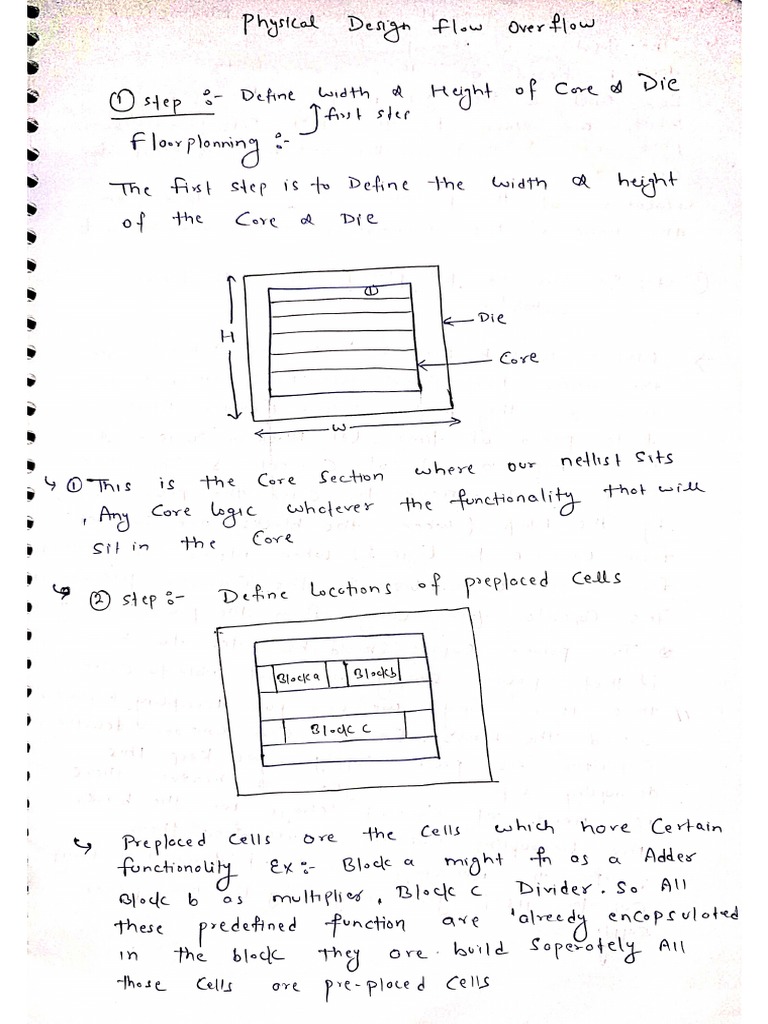 Physical Design flow overflow
① step :- Define width & Height of Core & Die
first step
floorplanning :-
The first step is to Define the width & height
of the Core & Die
①
H
Die
Core
W
① This is the Core Section where our netlist sits
, Any Core logic whatever the functionality that will
sit in the Core
② step :- Define Locations of preplaced Cells
Block a Block b
Block C
Preplaced Cells are the Cells which have Certain
functionality Ex :- Block a might fn as a Adder
Block b as multiplier, Block C Divider. So All
these predefined function are already encapsulated
in the block they are build Seperately All
those Cells are pre-placed Cells